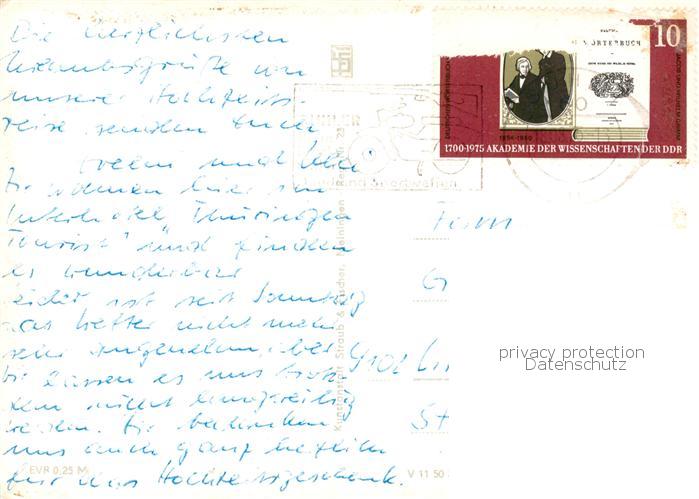 Die herzlichsten
Urlaubsgrüße von
unserer Hochzeits-
reise senden Euch
und
Wir wohnen hier im
Interhotel "Thüringen
Tourist" und finden
es wunderbar
Leider ist seit Sonntag
das Wetter nicht mehr
sehr angenehm, aber
wir lassen es uns trotz-
dem nicht langweilig
werden. Wir bedanken
uns auch ganz herzlich
für das Hochzeitsgeschenk.
EVR 0,25 M
V 11 50
Kunstanstalt Straub & Fischer, Meiningen
WÖRTERBUCH
10
JACOB UND WILHELM GRIMM
1854-1960
1700-1975 AKADEMIE DER WISSENSCHAFTEN DER DDR
Fam
G
St
privacy protection
Datenschutz